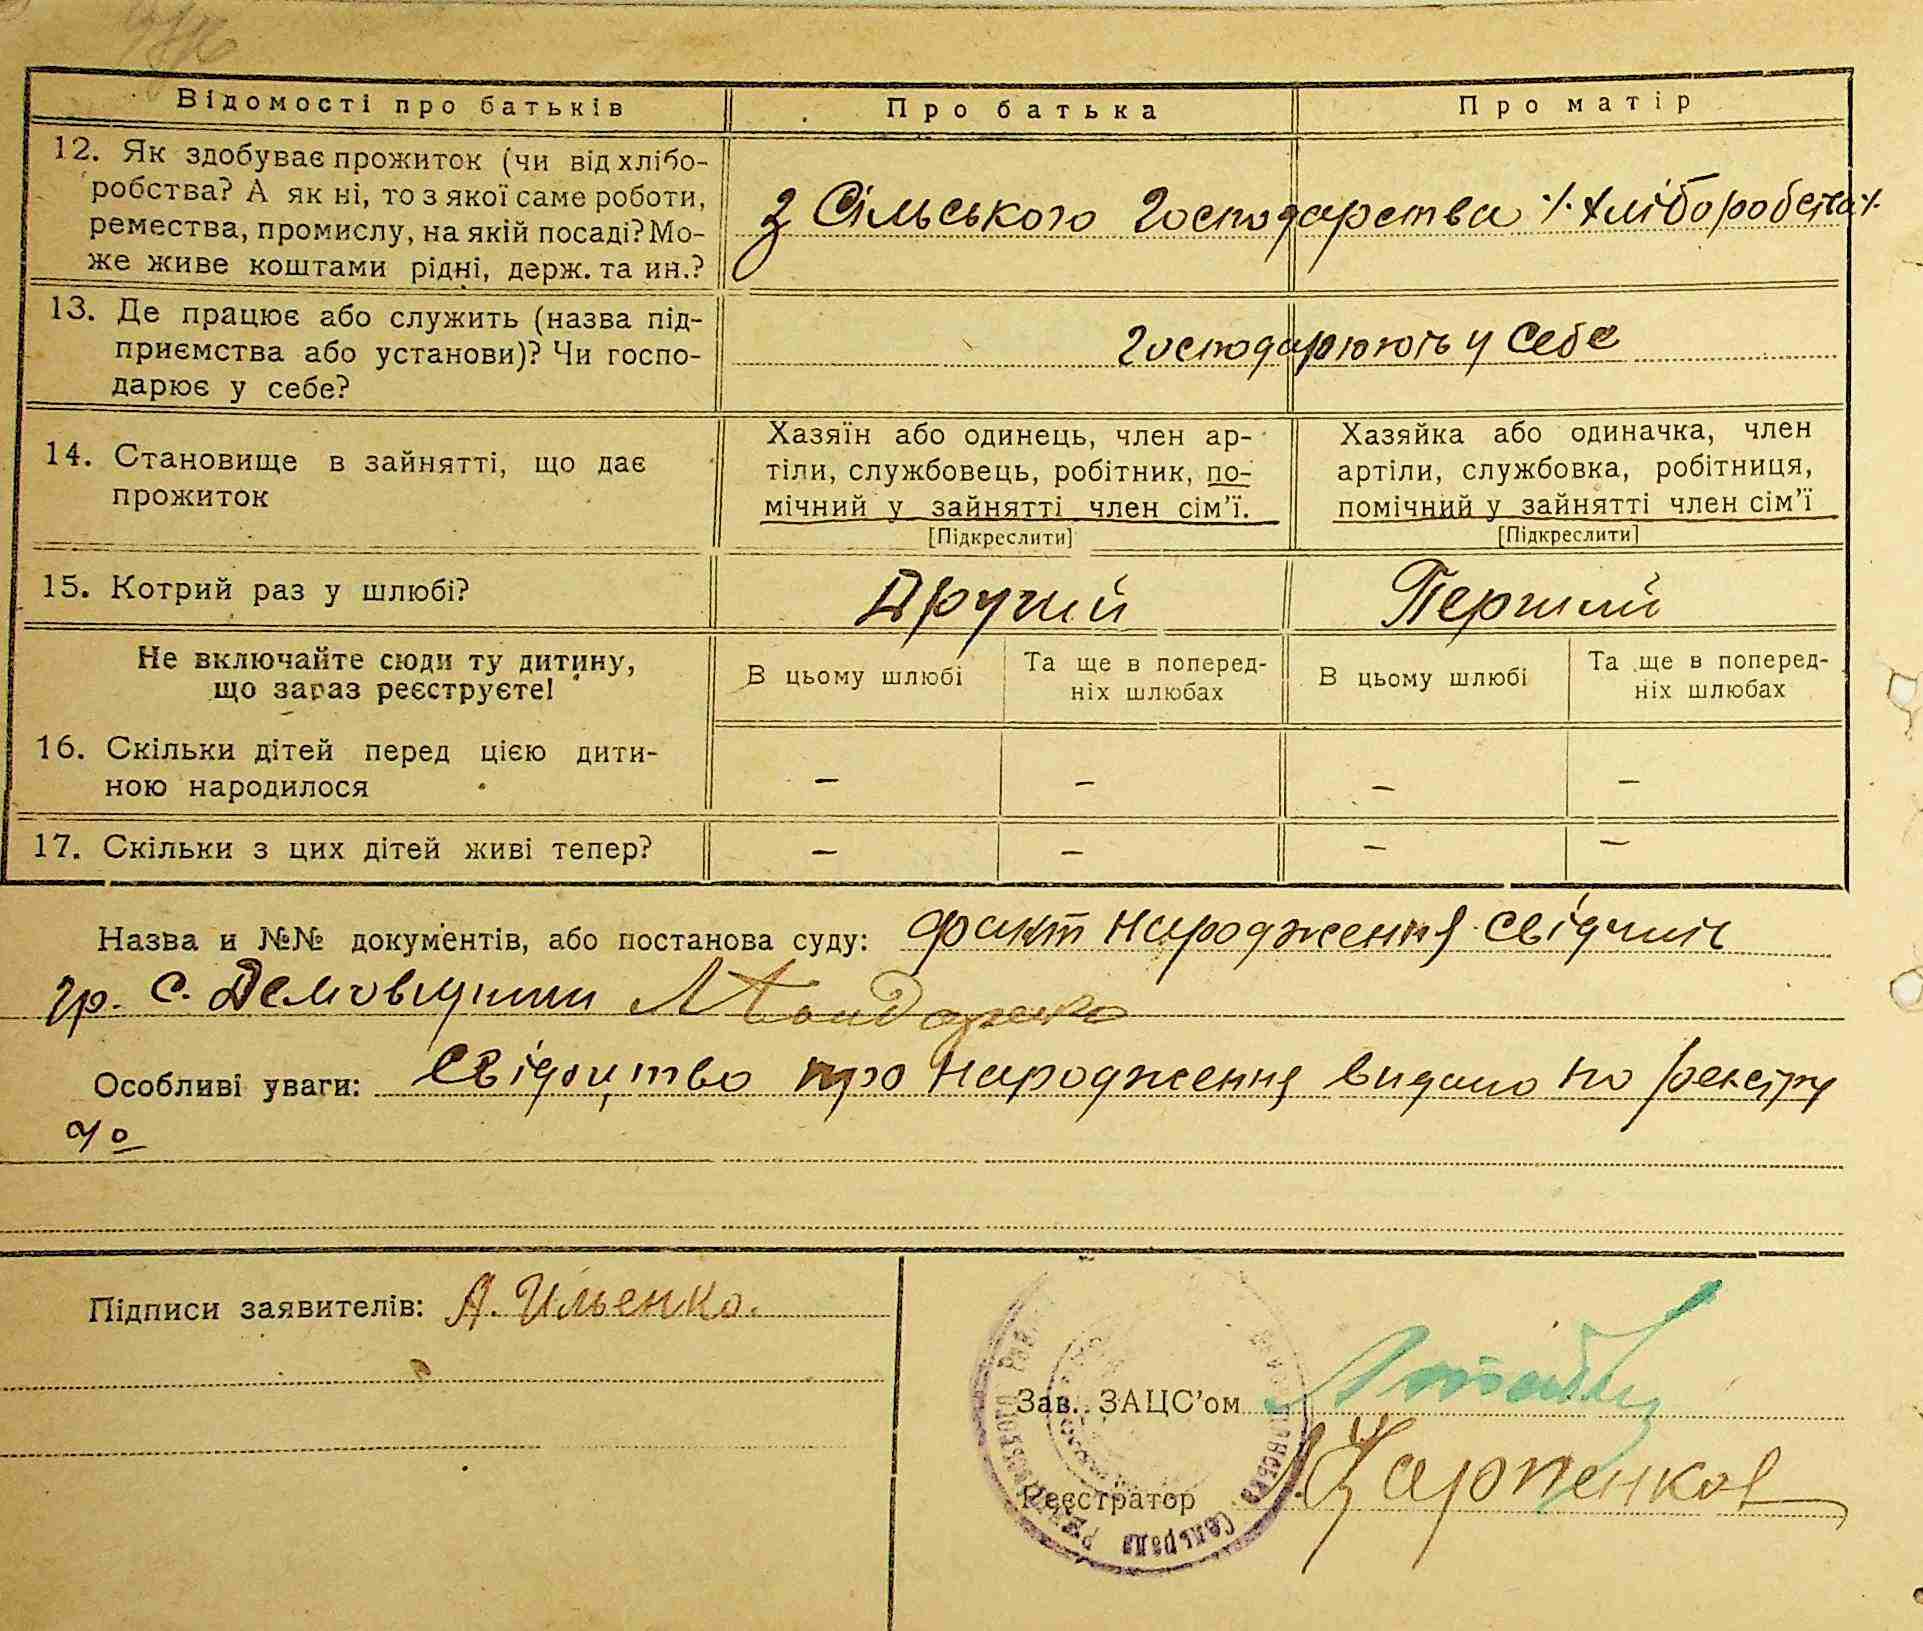 Відомості про батьків
Про батька
Про матір
12. Як здобуває прожиток (чи від хлібо-
робства? А як ні, то з якої саме роботи,
ремества, промислу, на якій посаді? Мо-
же живе коштами рідні, держ. та ин.?
з Сільського Господарства ·/· Хліборобства ·/·
13. Де працює або служить (назва під-
приємства або установи)? Чи госпо-
дарює у себе?
Господарюють у себе
14. Становище в зайнятті, що дає
прожиток
Хазяїн або одинець, член ар-
тіли, службовець, робітник, по-
мічний у зайнятті член сім'ї.
[Підкреслити]
Хазяйка або одиначка, член
артіли, службовка, робітниця,
помічний у зайнятті член сім'ї
[Підкреслити]
15. Котрий раз у шлюбі?
Другий
Перший
Не включайте сюди ту дитину,
що зараз реєструєте!
В цьому шлюбі
Та ще в поперед-
ніх шлюбах
В цьому шлюбі
Та ще в поперед-
ніх шлюбах
16. Скільки дітей перед цією дити-
ною народилося
– – – –
17. Скільки з цих дітей живі тепер?
– – – –
Назва и №№ документів, або постанова суду: факт народження свідчить
гр. с. Демовщини
Особливі уваги: Свідоцтво про народження видано по реєстру
Підписи заявителів: А. Ильенко.
Зав. ЗАЦС'ом
Реєстратор
Сельрада